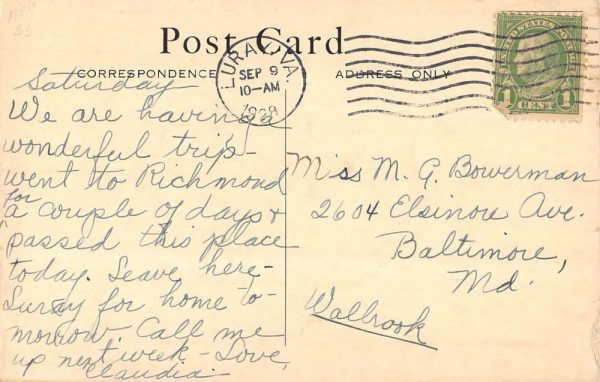 Post Card
CORRESPONDENCE
ADDRESS ONLY
LURAY, VA.
SEP 9
10-AM
1928
UNITED STATES POSTAGE
1 CENT 1
Saturday
We are having a
wonderful trip -
went to Richmond
for
a couple of days &
passed this place
today. Leave here -
Luray for home to-
morrow. Call me
up next week - Love,
Claudia.
Miss M. G. Bowerman
2604 Elsinore Ave.
Baltimore,
Md.
Walbrook